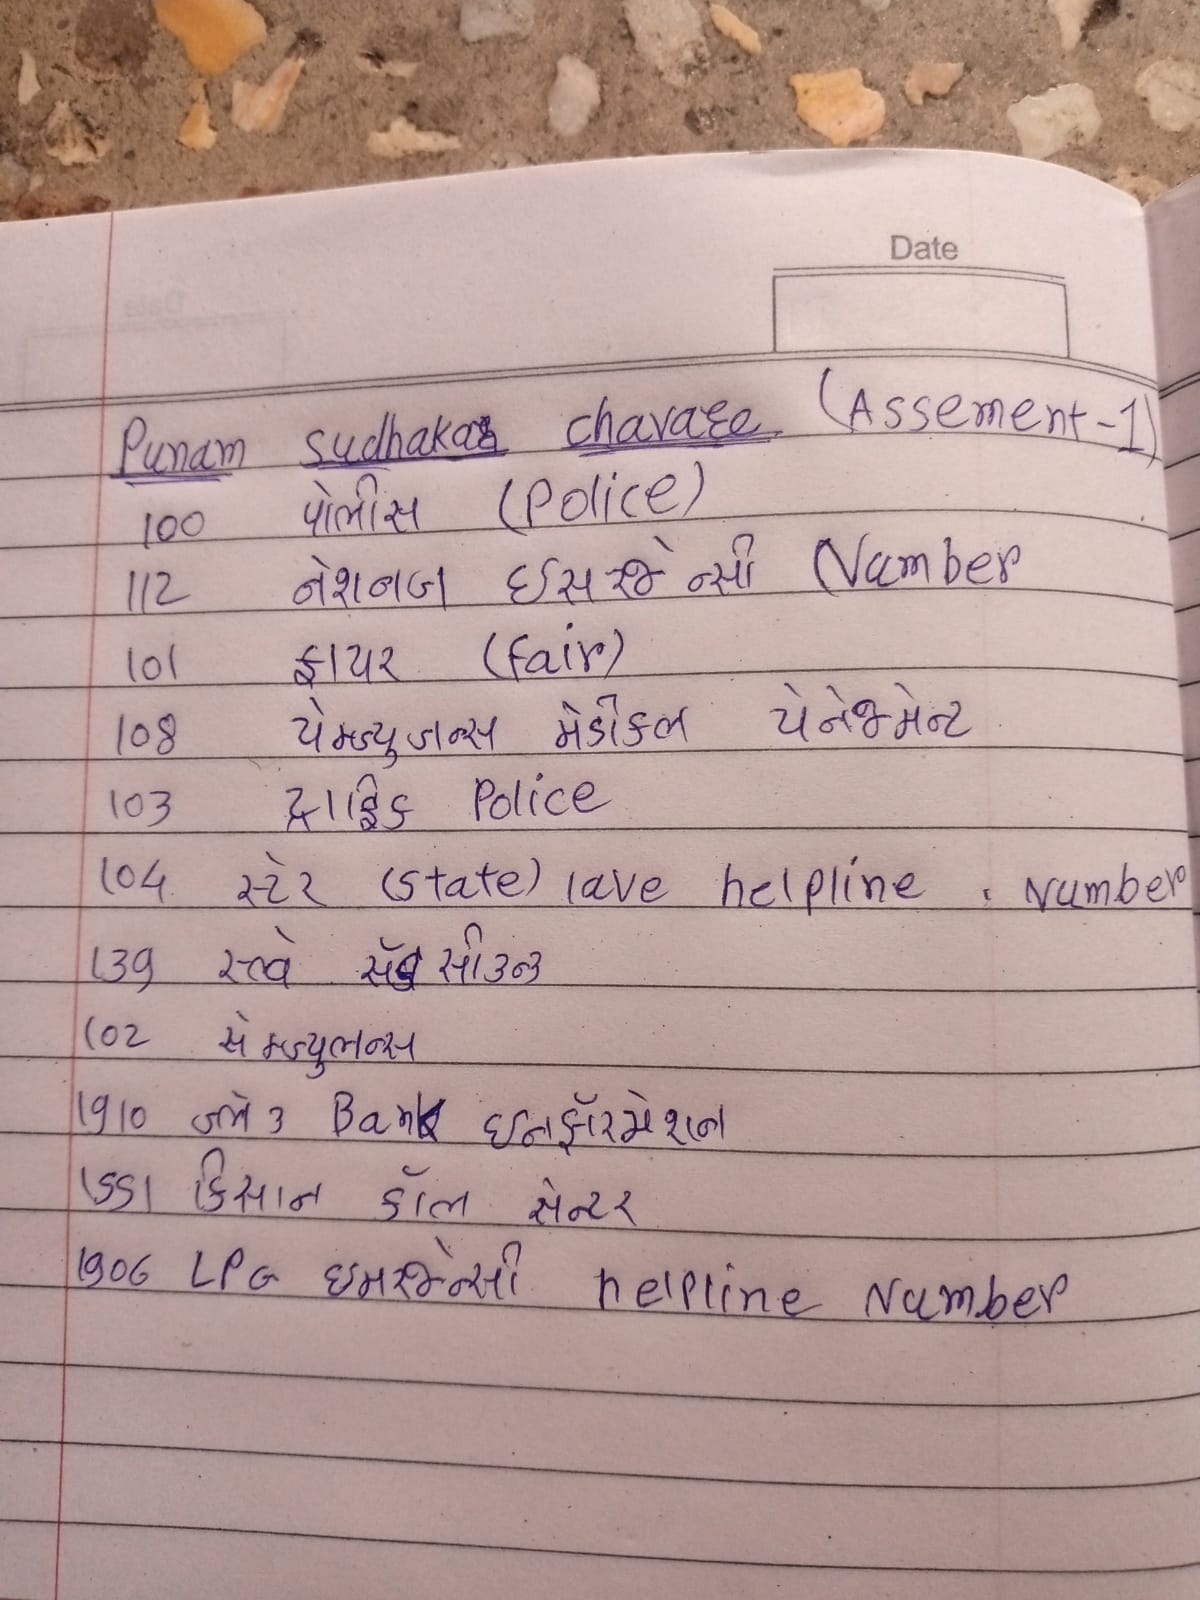 Date
Punam sudhakar chavare (Assement-1)
100 પોલીસ (Police)
112 નેશનલ ઈસરજેન્સી Number
101 ફાયર (fair)
108 મેડીકલ
103 Police
104 સ્ટેટ (State) lave helpline Number
139
102
1910 Bank ઇનફૉરમેશન
1551 કિસાન કૉલ સેન્ટર
1906 LPG ઇમરજેન્સી helpline Number